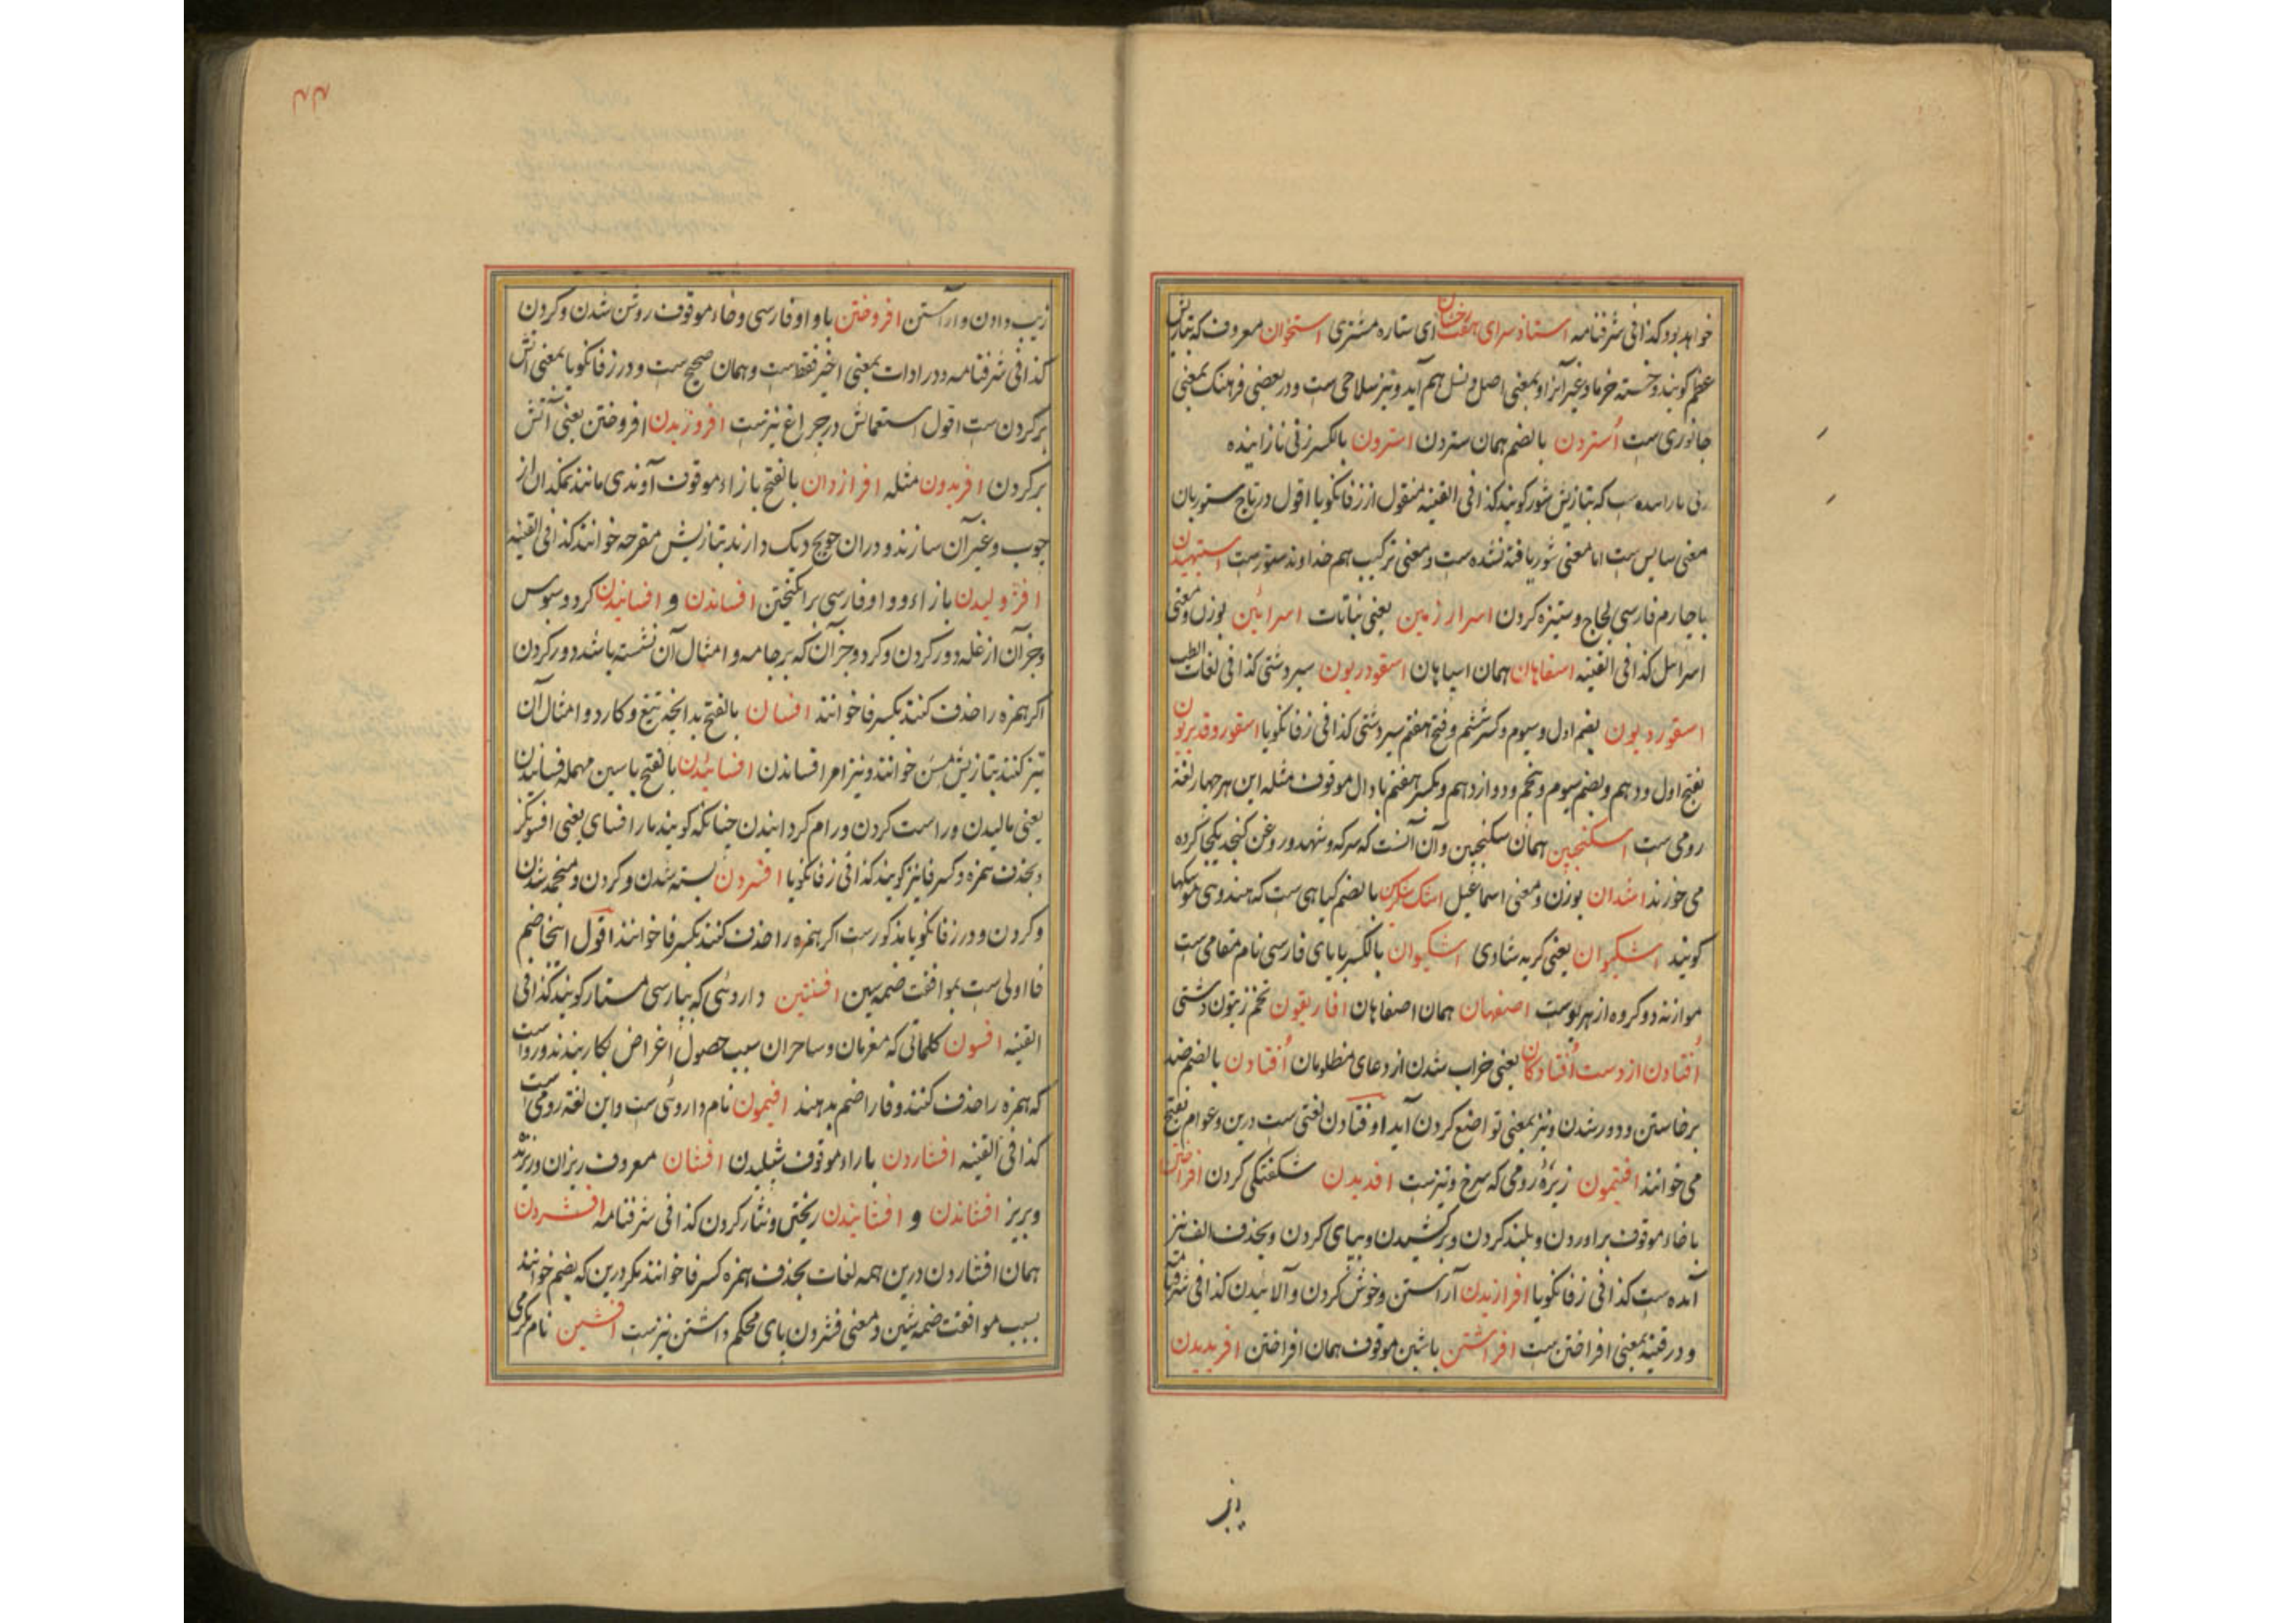 خواهد بود کذا فی شرفنامه استاد سرای هفترخان ای ستاره مشتری استخوان معروف که بتازیش
عظم کویند و خسته خرما و غیر آنرا و بمعنی اصل و نسل هم آید و نیز سلاحی ست و در بعضی فرهنک بمعنی
جانوری ست اُستردن بالضم همان ستردن استرون بالکسر زنی نازاینده
که بتازیش کویند کذا فی القنیه منقول از زفانکویا اقول در تاج ستوربان
معنی سایس ست اما معنی شور یافته نشده ست و معنی ترکیب هم خداوند ستورست ستیهیدن
با جارم فارسی لجاج و ستیزه کردن اسرار زمین یعنی نباتات اسرائین بوزن و معنی
اسرائیل کذا فی القنیه اسفاهان همان اسپاهان اسقودریون سیر دشتی کذا فی لغات الطب
اسقوردیون بضم اول و سیوم و کسر ششم و فتح هفتم سیر دشتی کذا فی زفانکویا اسقوروقدیریون
بفتح اول و دهم و بضم سیوم و پنجم و دوازدهم و بکسر هفتم با دال موقوف مثله این هر چهار لغة
رومی ست اسکنجبین همان سکنجبین و آن آنست که سرکه و شهد و روغن کنجد یکجا کرده
می خورند اشدان بوزن و معنی اسماعیل اشک بالضم کیاهی ست که هندوی
کویند اشکیوان یعنی کریه شادی اشکیوان بالکسر با یای فارسی نام مقامی ست
موازنه دو کروه از هریوست اصفهان همان اصفاهان افاریقون تخم زیتون دشتی
اُفتادن از دست اُفتادکان یعنی خراب شدن از دعای مظلومان اُفتادن بالضم ضد
برخاستن و دور شدن و نیز بمعنی تواضع کردن آید اوفتادن لغتی ست درین و عوام بفتح
می خوانند افتیمون زیرهٔ رومی که سرخ و تیزست افدیدن شکفتکی کردن افراختن
با خاء موقوف براوردن و بلند کردن و برکشیدن و بپای کردن و بحذف الف نیز
آمده ست کذا فی زفانکویا افرازیدن آراستن و خوش کردن و آلائیدن کذا فی شرفنامه
و در قنیه بمعنی افراختن ست افراشتن باشین موقوف همان افراختن افریدیدن
۴۴
زیب دادن و اراستن افروختن با واو فارسی و خاء موقوف روشن شدن و کردن
کذا فی شرفنامه و در ادات بمعنی اخیر فقط ست و همان صحیح ست و در زفانکویا بمعنی آتش
برکردن ست اقول استعمالش در چراغ نیزست افروزیدن افروختن یعنی آتش
برکردن افریدون مثله افرازدان بالفتح با زاء موقوف آوندی مانند نمکدان از
چوب و غیر آن سازند و دران حویج دیک دارند بتازیش مقرحه خوانند کذا فی القنیه
افژولیدن با زاء و واو فارسی برانکیختن افساندن و افسانیدن کرد و سبوس
و جز آن از غله دور کردن و کرد و جز آن که بر جامه و امثال آن نشسته باشد دور کردن
اکر همزه را حذف کنند بکسر فا خوانند افسان بالفتح بدانچه تیغ و کارد و امثال آن
تیز کنند بتازیش مسن خوانند و نیز امر افساندن افسائیدن بالفتح با سین مهمله فسائیدن
یعنی مالیدن و راست کردن و رام کردانیدن چنانکه کویند مار افسای یعنی افسونکر
و بحذف همزه و کسر فا نیز کویند کذا فی زفانکویا افسردن بسته شدن و کردن و منجمد شدن
و کردن و در زفانکویا مذکورست اکر همزه را حذف کنند بکسر فا خوانند اقول اینجا ضم
فا اولی ست بموافقت ضمه سین افسنتین داروئی که بپارسی مستار کویند کذا فی
القنیه افسون کلماتی که مغرمان و ساحران سبب حصول اغراض بکار بندند و رواست
که همزه را حذف کنند و فا را ضم بدهند افیمون نام داروئی ست و این لغة رومی ست
کذا فی القنیه افشاردن با راء موقوف شپلیدن افشان معروف ریزان و ریزند
و بریز افشاندن و افشانیدن ریختن و نثار کردن کذا فی شرفنامه افشردن
همان افشاردن درین همه لغات بحذف همزه کسر فا خوانند مکر درین که بضم خوانند
بسبب موافقت ضمه شین و معنی فشردن پای محکم داشتن نیزست افشین نام مکرمی
زیب